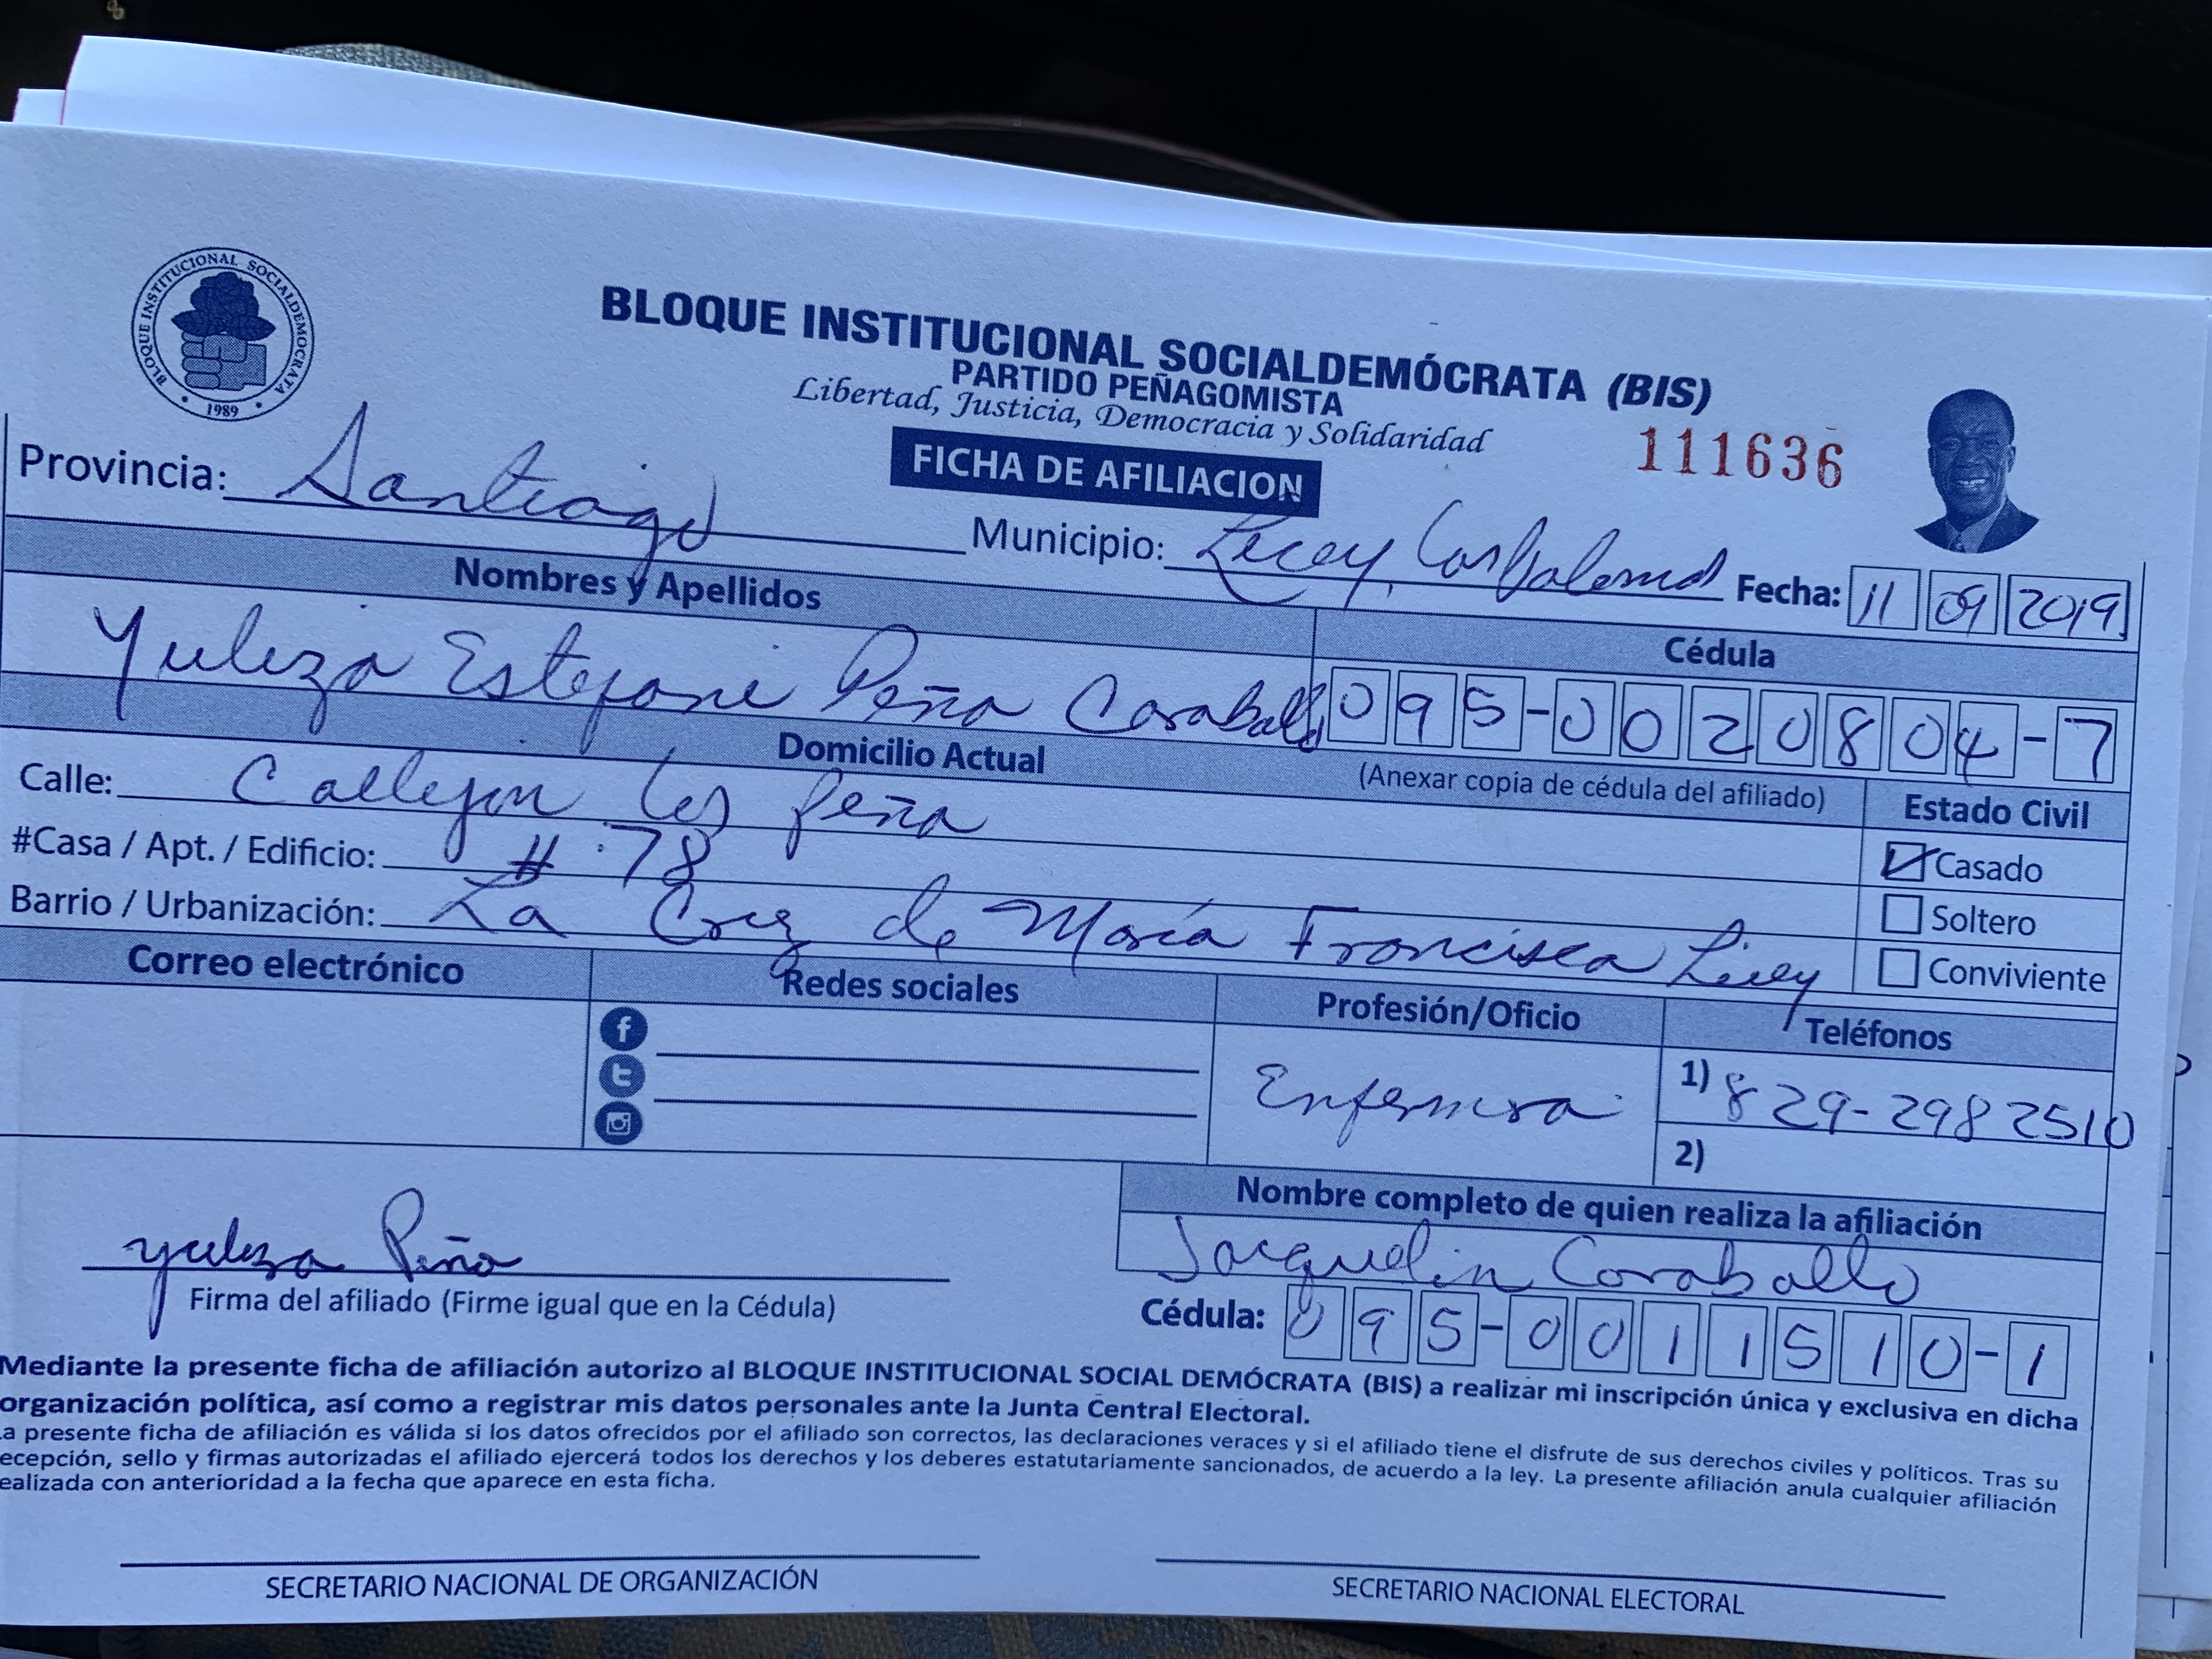 BLOQUE INSTITUCIONAL SOCIALDEMOCRATA
1989
BLOQUE INSTITUCIONAL SOCIALDEMÓCRATA (BIS)
PARTIDO PEÑAGOMISTA
Libertad, Justicia, Democracia y Solidaridad
FICHA DE AFILIACION
111636
Provincia: Santiago
Municipio: Licey,
Fecha: 11 09 2019
Nombres y Apellidos
Cédula
Yuleza Estefani Peña Caraballo
095-0020804-7
(Anexar copia de cédula del afiliado)
Domicilio Actual
Estado Civil
Calle: Callejon los Peña
#Casa / Apt. / Edificio: # 78
Barrio / Urbanización: La Cruz de María Francisca Licey
Casado
Soltero
Conviviente
Correo electrónico
Redes sociales
Profesión/Oficio
Teléfonos
Enfermera
1) 829-298 2510
2)
Yuleza Peña
Firma del afiliado (Firme igual que en la Cédula)
Nombre completo de quien realiza la afiliación
Jacquelin Caraballo
Cédula: 095-0011510-1
Mediante la presente ficha de afiliación autorizo al BLOQUE INSTITUCIONAL SOCIAL DEMÓCRATA (BIS) a realizar mi inscripción única y exclusiva en dicha
organización política, así como a registrar mis datos personales ante la Junta Central Electoral.
a presente ficha de afiliación es válida si los datos ofrecidos por el afiliado son correctos, las declaraciones veraces y si el afiliado tiene el disfrute de sus derechos civiles y políticos. Tras su
ecepción, sello y firmas autorizadas el afiliado ejercerá todos los derechos y los deberes estatutariamente sancionados, de acuerdo a la ley. La presente afiliación anula cualquier afiliación
ealizada con anterioridad a la fecha que aparece en esta ficha.
SECRETARIO NACIONAL DE ORGANIZACIÓN
SECRETARIO NACIONAL ELECTORAL